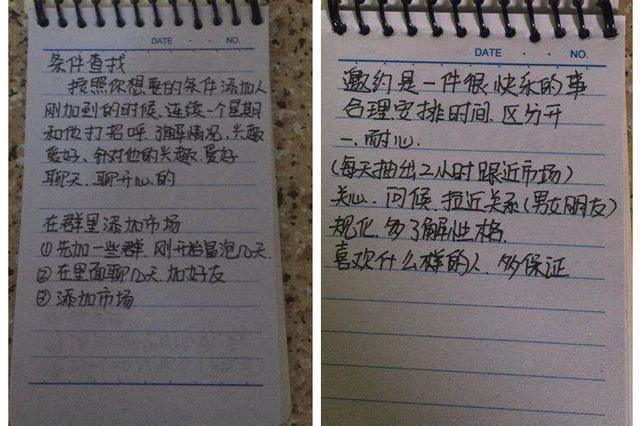 DATE
NO.
条件查找
按照你想要的条件添加人
刚加到的时候,连续一个星期
和他打招呼.了解情况.兴趣
爱好.针对他的兴趣.爱好
聊天.聊开心的
在群里添加市场
①先加一些群.刚开始冒泡几天.
②在里面聊几天.加好友
③添加市场
DATE
NO.
邀约是一件很快乐的事
合理安排时间.区分开
一.耐心.
(每天抽出2小时跟近市场)
关心.问候.拉近关系(男女朋友)
规化.多了解性格.
喜欢什么样的人.多保证